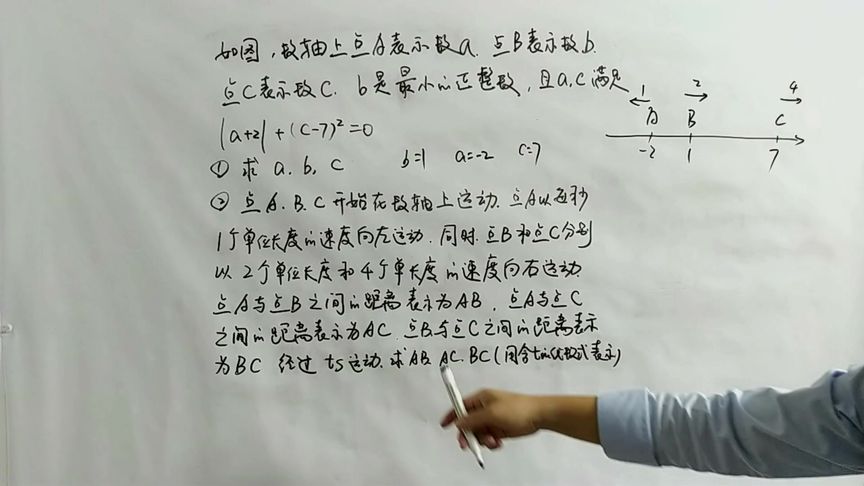 如图,数轴上点A表示数a.点B表示数b.
点C表示数C. b是最小的正整数,且a,c满足
|a+2|+(c-7)²=0
① 求 a. b. c b=1 a=-2 c=7
② 点A.B.C开始在数轴上运动.点A以每秒
1个单位长度的速度向左运动.同时.点B和点C分别
以2个单位长度和4个单长度的速度向右运动
点A与点B之间的距离表示为AB,点A与点C
之间的距离表示为AC.点B与点C之间的距离表示
为BC 经过ts运动.求AB.AC.BC(用含t的代数式表示)
1 2 4
A B C
-2 1 7